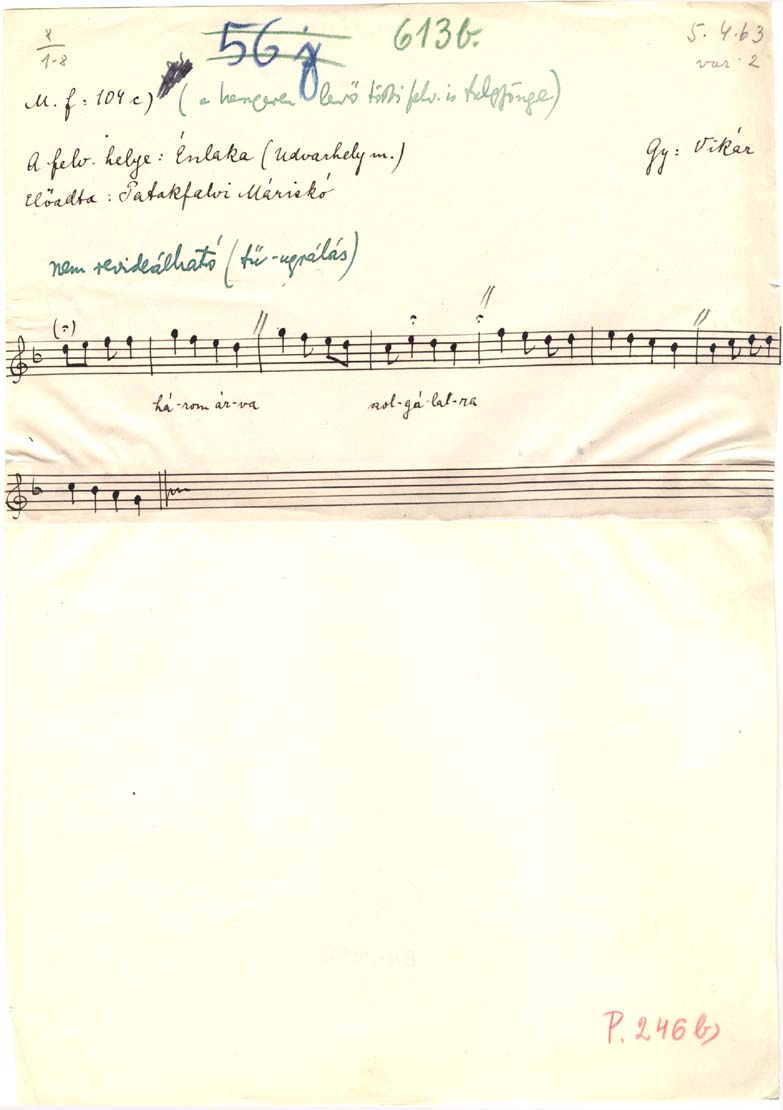 x/1-8 56 j 613b. 5.4.63
var 2
M. f: 104 c) (a hengeren levő többi felv. is tulgyönge)
A felv. helye: Énlaka (Udvarhely m.) Gy: Vikár
Előadta: Patakfalvi Mariskó
nem revideálható (tű-ugrálás)
há-rom ár-va szol-gá-lat-ra
P. 246 b)